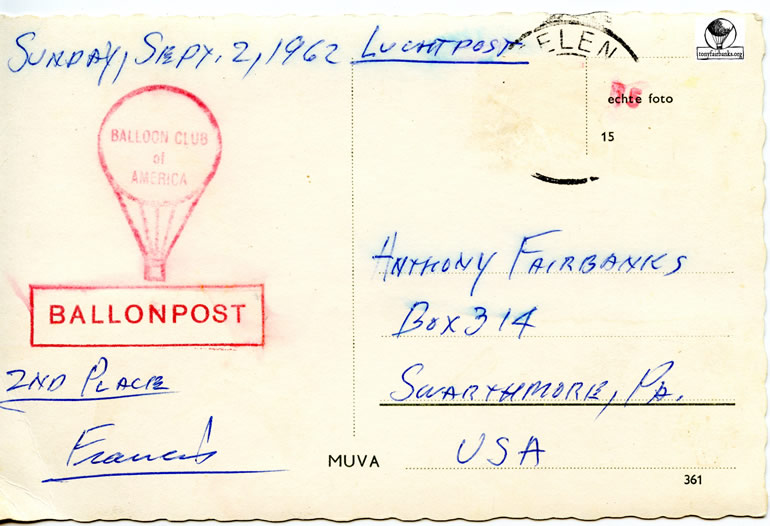 SUNDAY, SEPT. 2, 1962 LUCHTPOST
ELEN
tonyfairbanks.org
echte foto
15
BALLOON CLUB
of
AMERICA
BALLONPOST
2ND PLACE
Francis
ANTHONY FAIRBANKS
BOX 314
SWARTHMORE, PA.
USA
MUVA
361